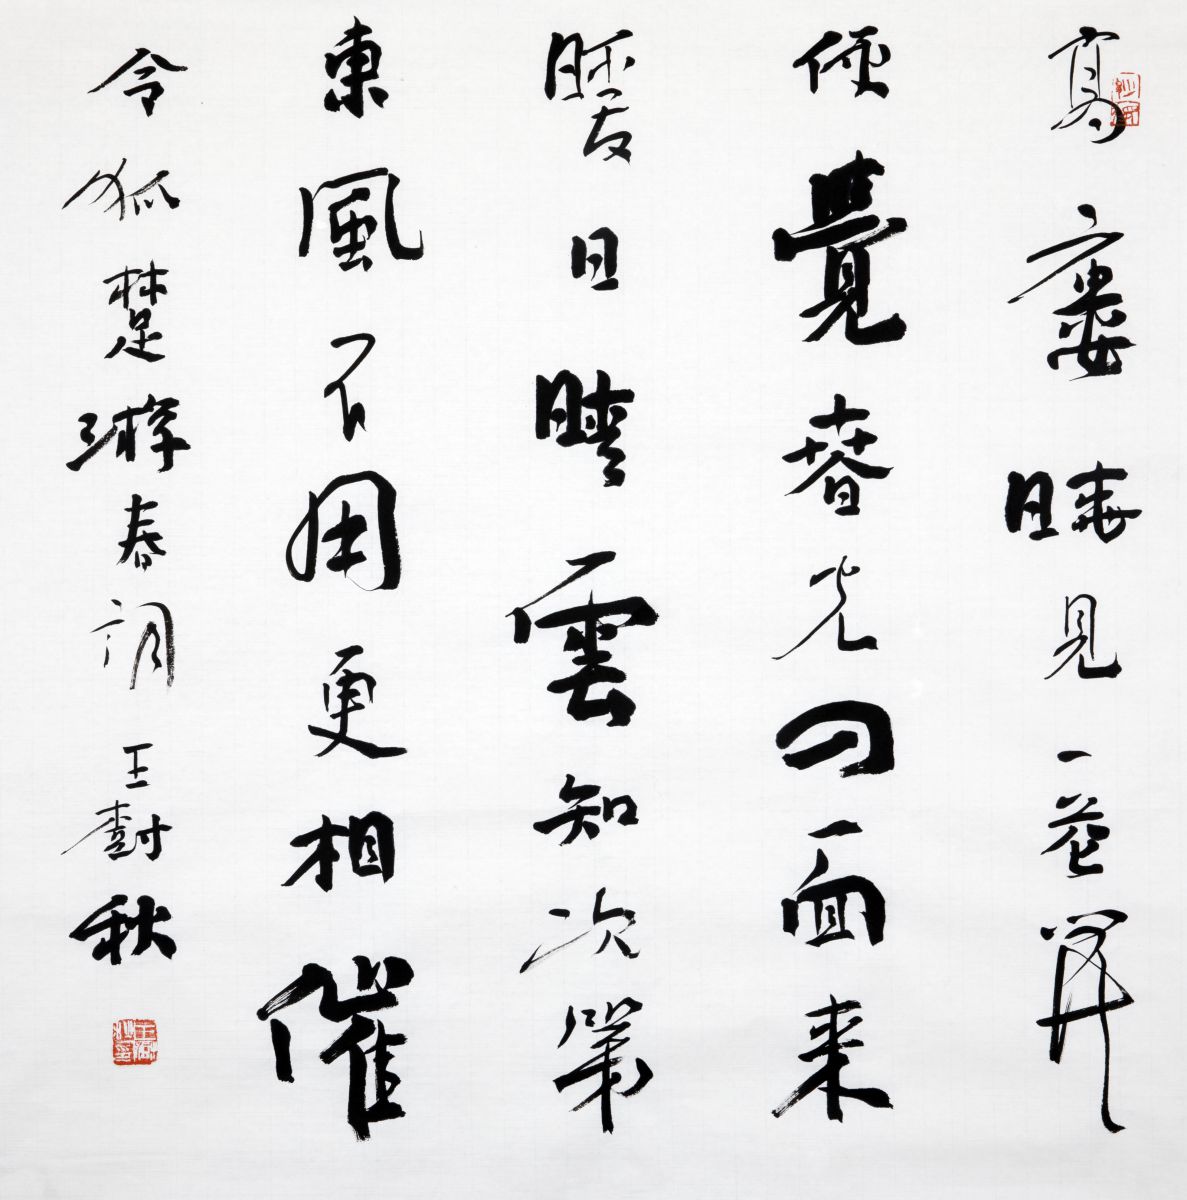 高樓曉見一花開
便覺春光四面来
暖日晴雲知次第
東風不用更相催
令狐楚游春詞王樹秋